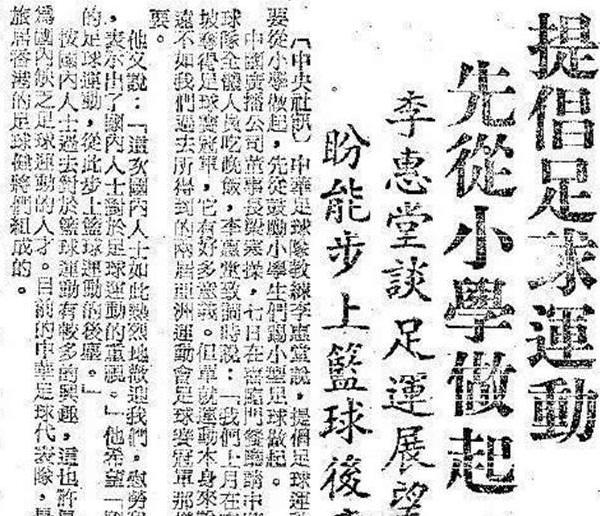 提倡足球運動
先從小學做起
李惠堂談足運展望
盼能步上籃球後
【中央社訊】中華足球隊教練李惠堂說，提倡足球運
要從小學做起，先從鼓動小學生們踢小型足球做起。
中國廣播公司董事長梁寒操，七日在 餐廳請中
球隊全體人員吃晚飯，李惠堂致詞時說：「我們上月在
坡奪得足球賽冠軍，它有好多意義。但單就運動本身來說
遠不如我們過去所得到的兩屆亞洲運動會足球賽冠軍那樣
要。
他又說：「這次國內人士如此熱烈地歡迎我們，慰勞
，表示出了國內人士對於足球運動的重視。」他希望「
的足球運動，從此步上籃球運動的後塵。」
被國內人士過去對於籃球運動有較多的興趣，這也許是
為國內缺乏足球運動的人才。目前的中華足球代表隊，是
旅居香港的足球健將們組成的。